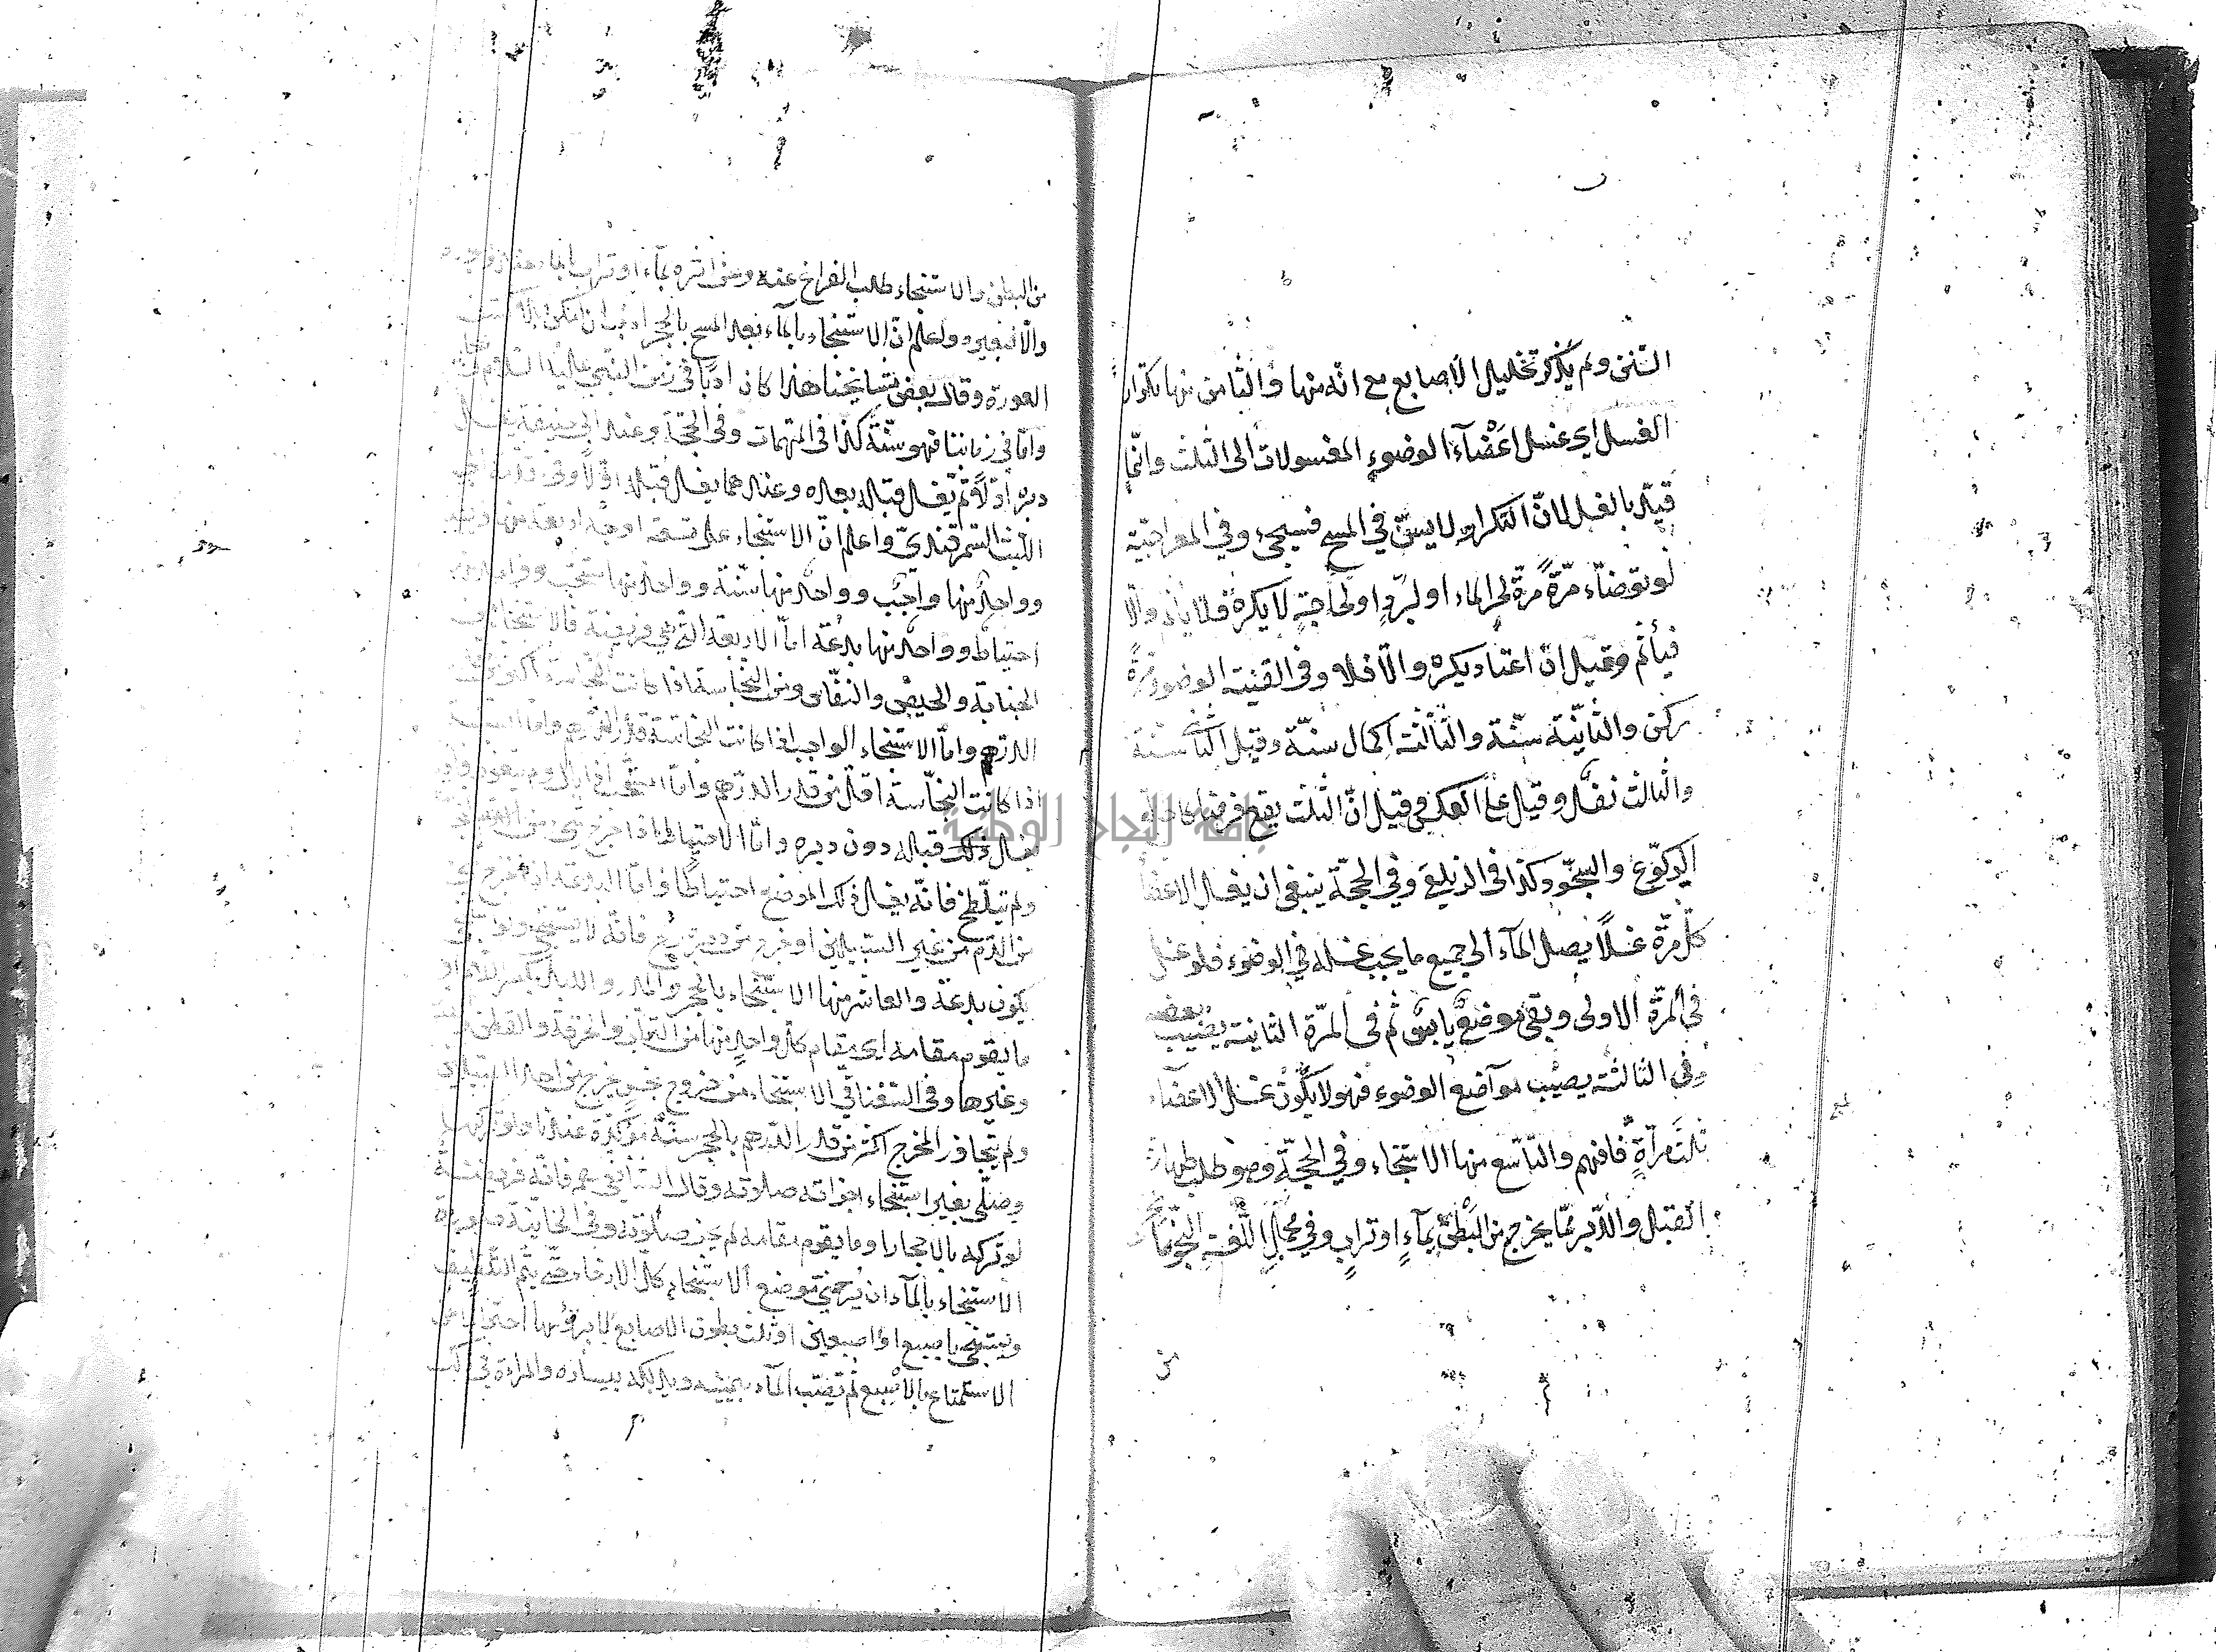 السنن ولم يذكر تخليل الاصابع مع انه منها والثامن منها تكرار
الغسل اي غسل اعضآء الوضوء المغسولات الى الثلث وانما
قيد بالغسل لان التكرار لا يسن في المسح فسيجيء وفي المعراجية
لو توضاء مرة مرة لحر الماء او لبرد او لحاجة لا يكره فلا يأثم والا
فيأثم وقيل ان اعتاد يكره والا فلا وفي القنية الوضوء مرة
ركن والثانية سنة والثالثة اكمال سنة وقيل الثاني سنة
والثالث نفل وقيل على العكس وقيل ان الثلث يقع فرضا كاطالة
الركوع والسجود كذا في الزيلعي وفي الحجة ينبغي ان يغسل الاعضآ
كل مرة غسلا يصل المآء الى جميع ما يجب غسله في الوضوء فلو غسل
في المرة الاولى وبقي موضع يابس ثم في المرة الثانية يصيب بعضه
وفي الثالثة يصيب مواضع الوضوء فهو لا يكون غسل الاعضآء
ثلث مرآة فافهم والتاسع منها الاستنجاء وفي الحجة وهو طلب طهارة
القبل والدبر مما يخرج من البطن بمآء او تراب وفي مجمل اللغة النجو ما
من البطن والاستنجاء طلب الفراغ عنه وعن اثره بماء او تراب
والا فبغيره واعلم ان الاستنجاء بالمآء بعد المسح بالحجر ادب ان امكن بلا كشف
العورة وقال بعض مشايخنا هذا كان ادبا في زمن النبي عليه السلام
واما في زماننا فهو سنة كذا في المتهمات وفي الحجة وعند ابي حنيفة يغسل
دبره اولا ثم يغسل قبله بعده وعندهما يغسل قبله اولا وفي
الليث السمرقندي واعلم ان الاستنجاء على تسعة اوجه اربعة منها
وواحد منها واجب وواحد منها سنة وواحد منها مستحب وواحد
احتياط وواحد منها بدعة اما الاربعة التي هي فريضة فالاستنجاء من
الجنابة والحيض والنفاس ومن النجاسة اذا كانت النجاسة اكثر من
الدرهم واما الاستنجاء الواجب اذا كانت النجاسة قدر الدرهم واما السنة
اذا كانت النجاسة اقل من قدر الدرهم واما المستحب اذا بال ولم يتغوط
يغسل ذكره قبله دون دبره واما الاحتياط اذا خرج شيء من
ولم يتلطخ فانه يغسل ذلك الموضع احتياطا واما البدعة اذا خرج
من الدم من غير السبيلين او خرج من دبره ريح فانه لا يستنجي
يكون بدعة والعاشر منها الاستنجاء بالحجر والمدر
ما يقوم مقامه اي مقام كل واحد منها من التراب والخرقة والقطن
وغيرها وفي السغناقي الاستنجاء من خروج نجس يخرج من احد السبيلين
ولم يتجاوز المخرج اكثر من قدر الدرهم بالحجر سنة مؤكدة عندنا ولو تركها
وصلى بغير استنجاء اجزاته صلاوته وقال الشافعي رحمه فانه فريضة
لو تركه بالاحجار او ما يقوم مقامه لم يجز صلوته وفي الخانية صورة
الاستنجاء بالمآء ان يرخي موضع الاستنجاء كل الارخاء حتى يتم التنظيف
ويستنجي باصبع او اصبعين او ثلث بطون الاصابع لا برؤسها احترازا عن
الاستمتاع بالاصبع ثم تصب المآء بيمينه ويدلكه بيساره والمراة في